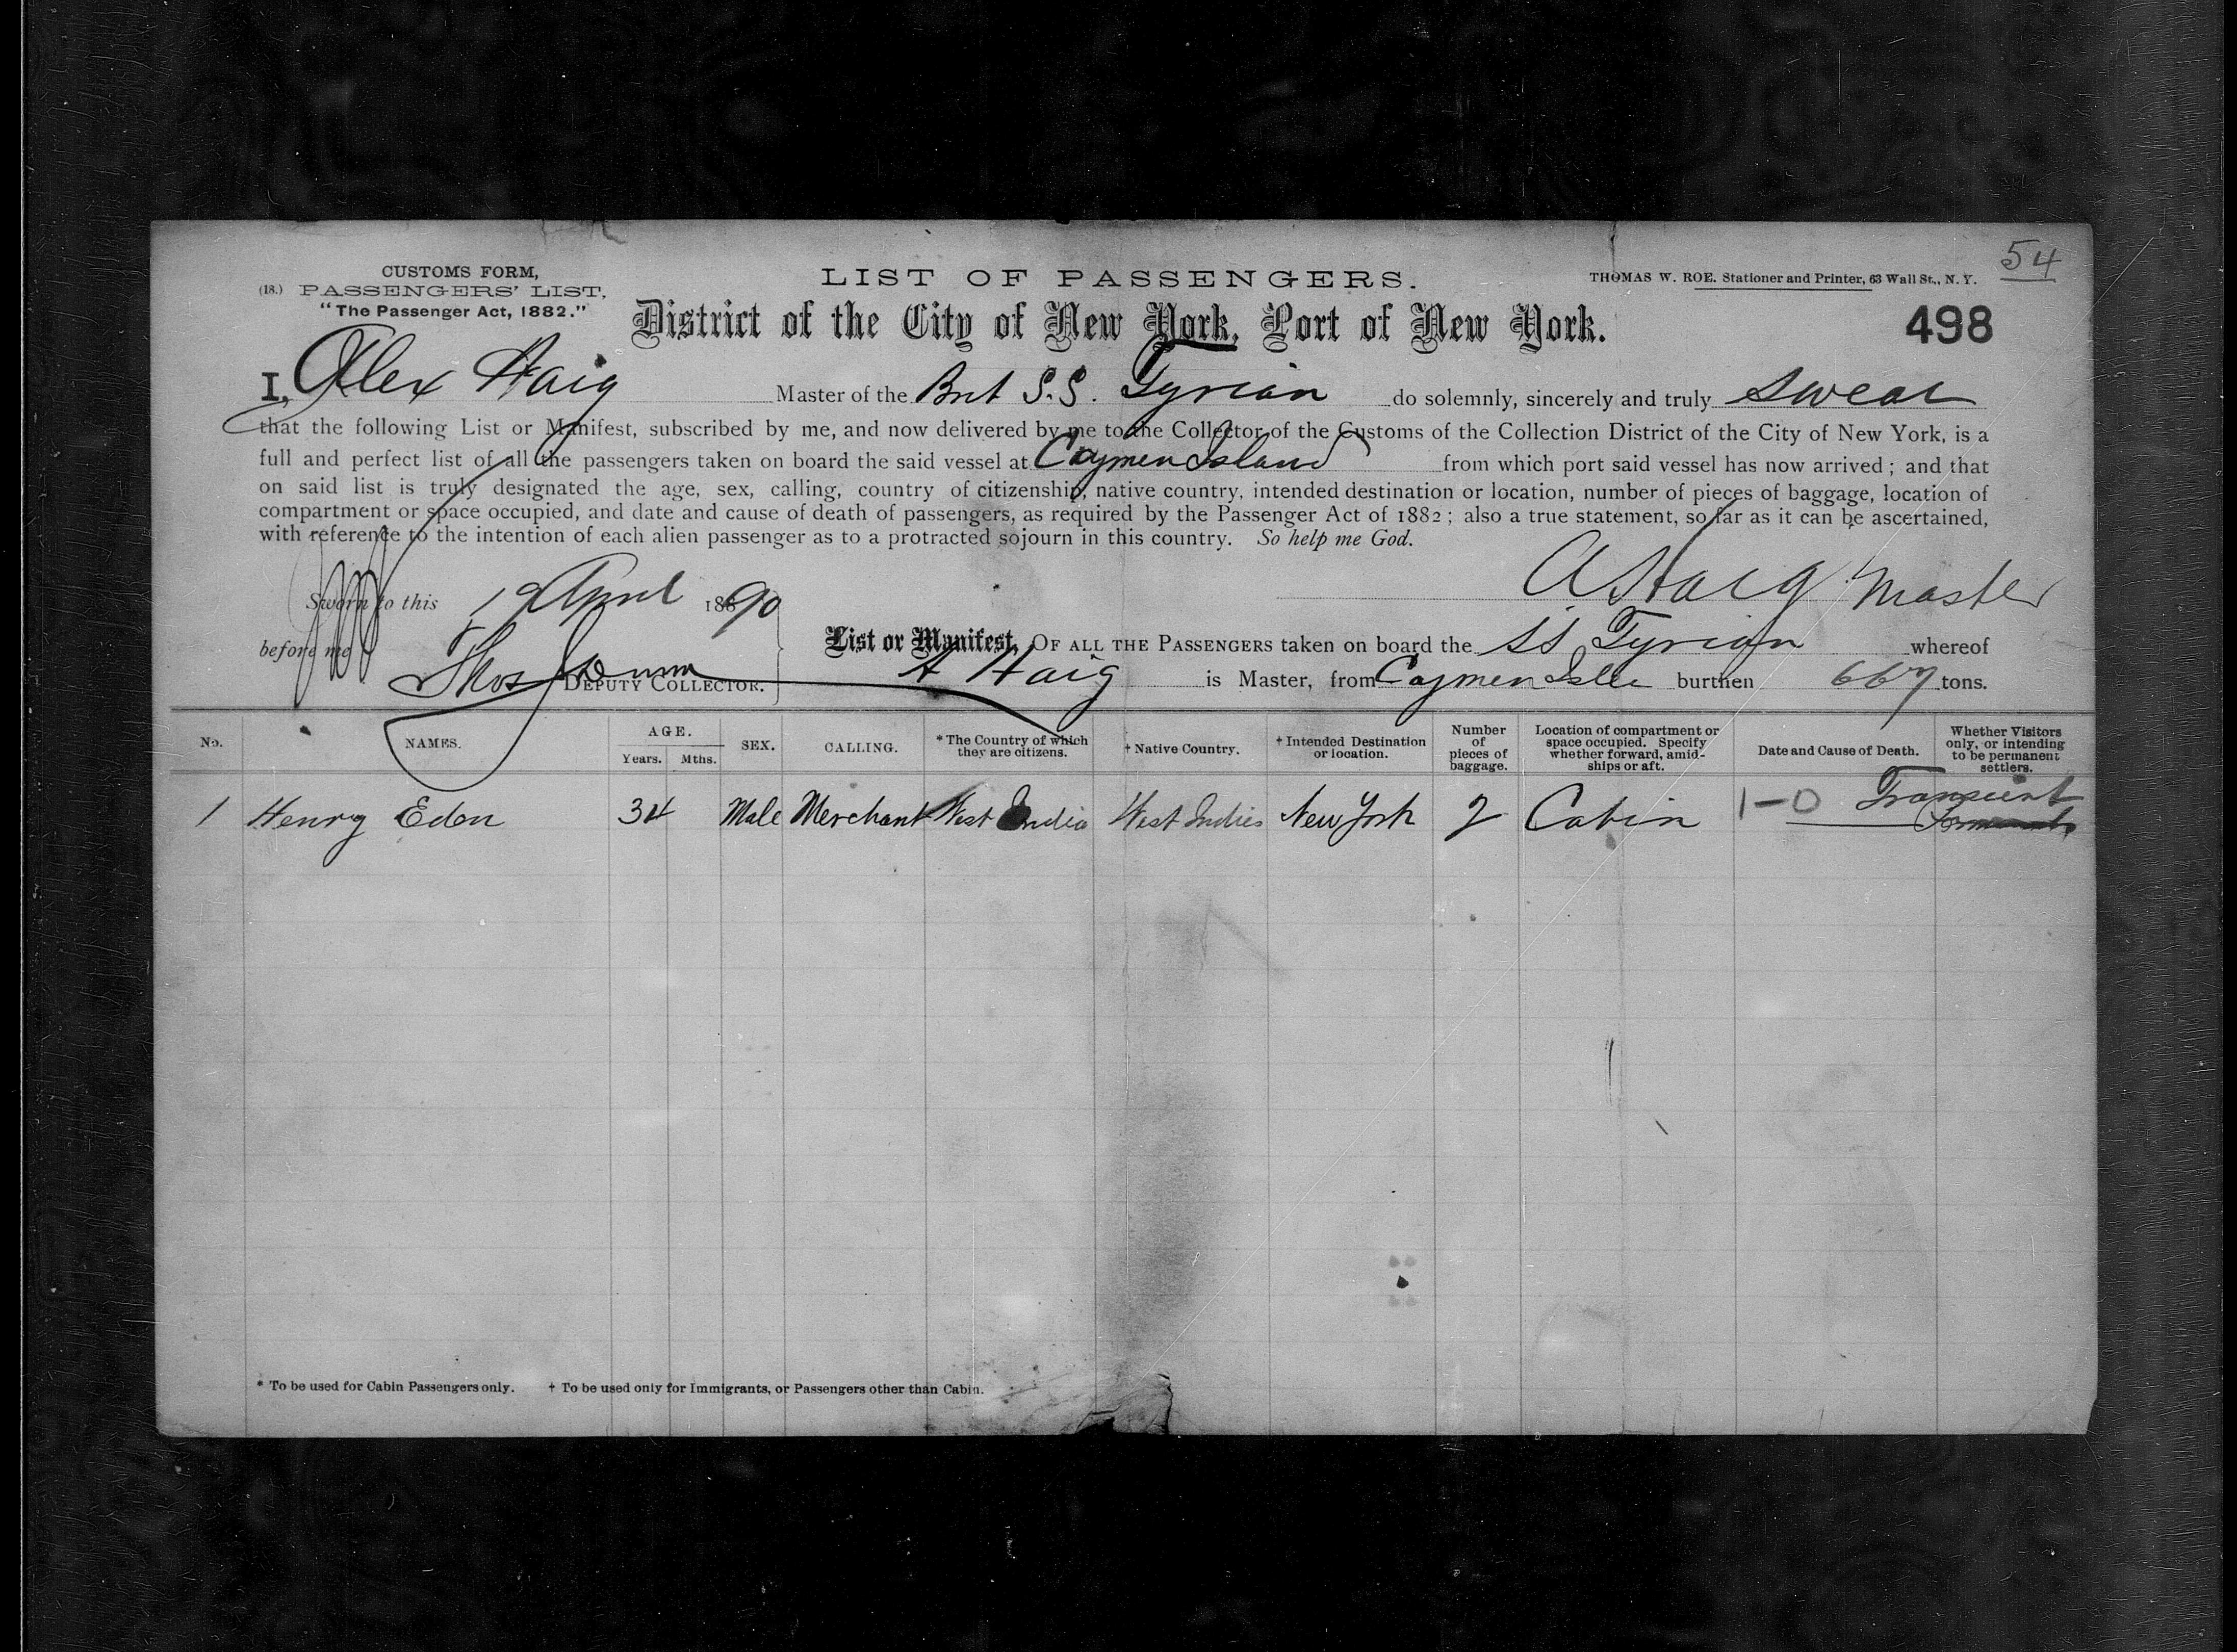 54
CUSTOMS FORM,
(18.) PASSENGERS' LIST,
"The Passenger Act, 1882."
LIST OF PASSENGERS.
THOMAS W. ROE. Stationer and Printer, 63 Wall St., N. Y.
District of the City of New York, Port of New York.
498
I, Alex Haig Master of the Brit S.S. Tyrian do solemnly, sincerely and truly swear
that the following List or Manifest, subscribed by me, and now delivered by me to the Collector of the Customs of the Collection District of the City of New York, is a
full and perfect list of all the passengers taken on board the said vessel at Caymen Island from which port said vessel has now arrived; and that
on said list is truly designated the age, sex, calling, country of citizenship, native country, intended destination or location, number of pieces of baggage, location of
compartment or space occupied, and date and cause of death of passengers, as required by the Passenger Act of 1882; also a true statement, so far as it can be ascertained,
with reference to the intention of each alien passenger as to a protracted sojourn in this country. So help me God.
A Haig Master
Sworn to this 19 April 1890
before me
Thos Dunn
DEPUTY COLLECTOR.
List or Manifest, OF ALL THE PASSENGERS taken on board the SS Tyrian whereof
A Haig is Master, from Caymen Isle burthen 667 tons.
No. NAMES. AGE. Years. Mths. SEX. CALLING. * The Country of which they are citizens. † Native Country. † Intended Destination or location. Number of pieces of baggage. Location of compartment or space occupied. Specify whether forward, amidships or aft. Date and Cause of Death. Whether Visitors only, or intending to be permanent settlers.
1 Henry Eden 34 Male Merchant West India West Indies New York 2 Cabin 1-0 Transient
* To be used for Cabin Passengers only. † To be used only for Immigrants, or Passengers other than Cabin.